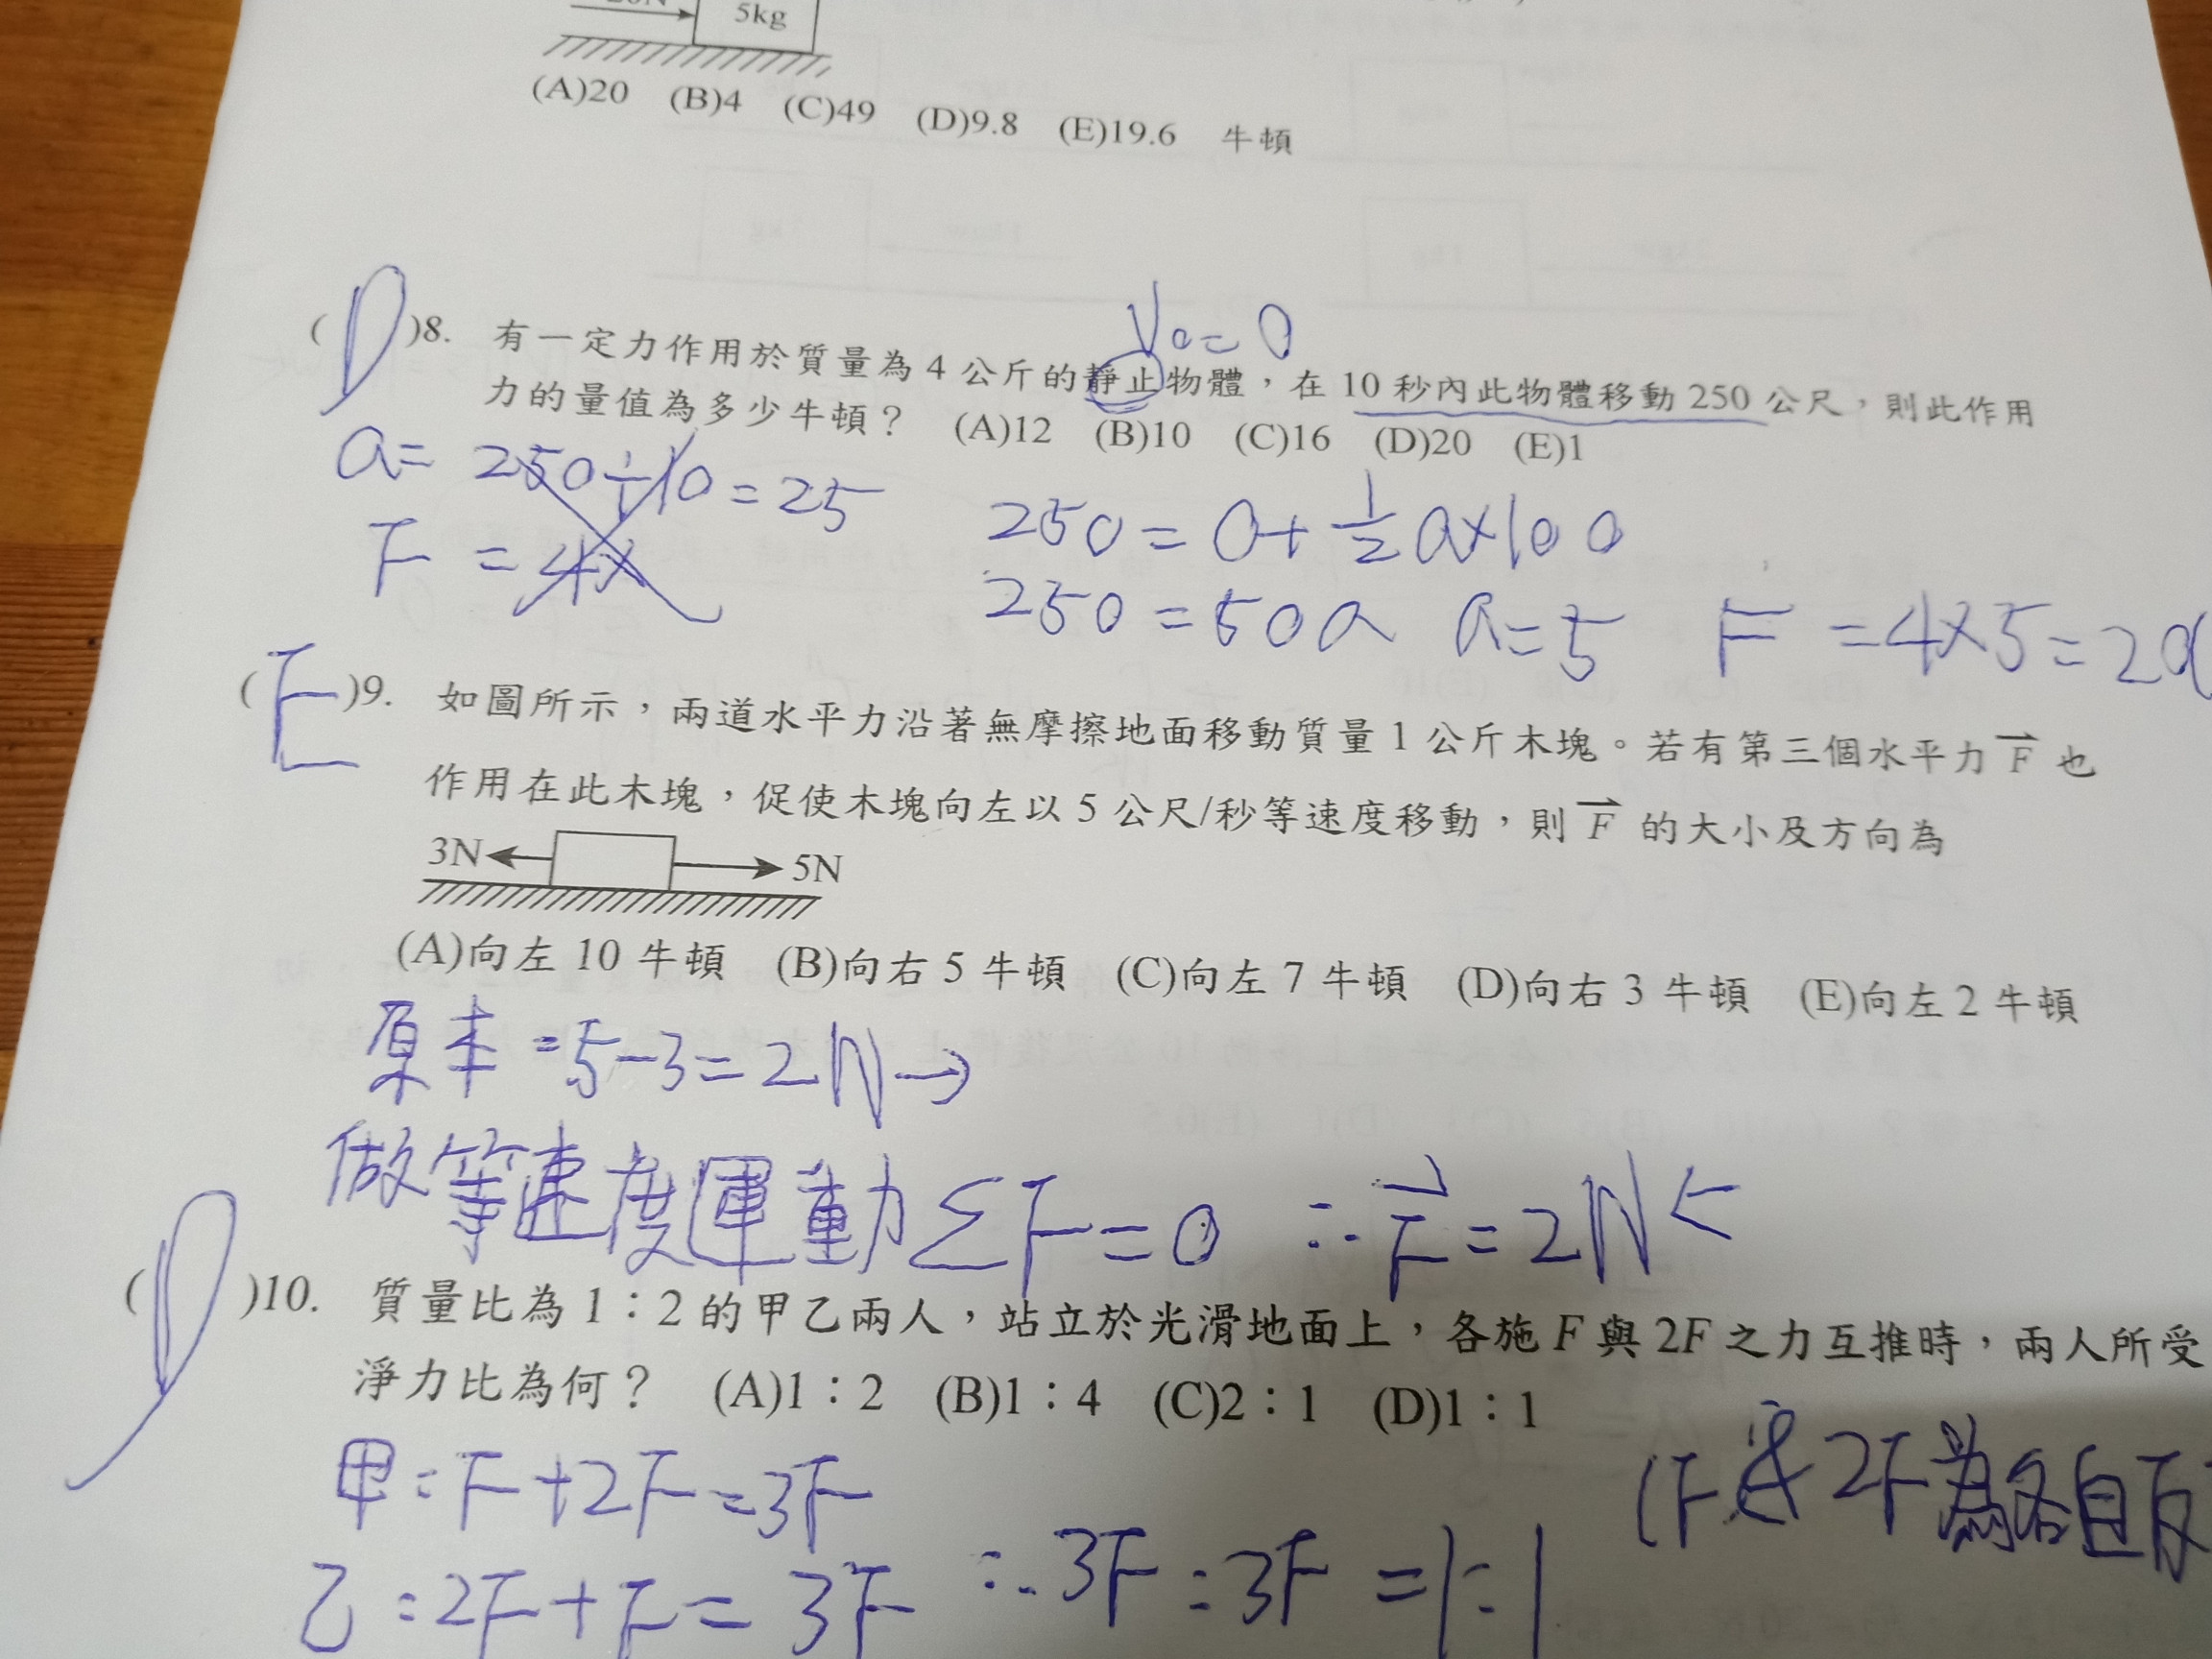 5kg
(A)20 (B)4 (C)49 (D)9.8 (E)19.6 牛頓
V₀=0
(D)8. 有一定力作用於質量為 4 公斤的靜止物體，在 10 秒內此物體移動 250 公尺，則此作用
力的量值為多少牛頓？ (A)12 (B)10 (C)16 (D)20 (E)1
a= 250÷10=25
F =4×
250=0+½a×100
250=50a a=5 F=4×5=20
(E)9. 如圖所示，兩道水平力沿著無摩擦地面移動質量 1 公斤木塊。若有第三個水平力 F⃗ 也
作用在此木塊，促使木塊向左以 5 公尺/秒等速度移動，則 F⃗ 的大小及方向為
3N 5N
(A)向左 10 牛頓 (B)向右 5 牛頓 (C)向左 7 牛頓 (D)向右 3 牛頓 (E)向左 2 牛頓
原本=5-3=2N→
做等速度運動ΣF=0 ∴F⃗=2N←
(D)10. 質量比為 1：2 的甲乙兩人，站立於光滑地面上，各施 F 與 2F 之力互推時，兩人所受
淨力比為何？ (A)1：2 (B)1：4 (C)2：1 (D)1：1
甲：F+2F=3F
乙：2F+F=3F ∴3F：3F=1：1
2F為各自反